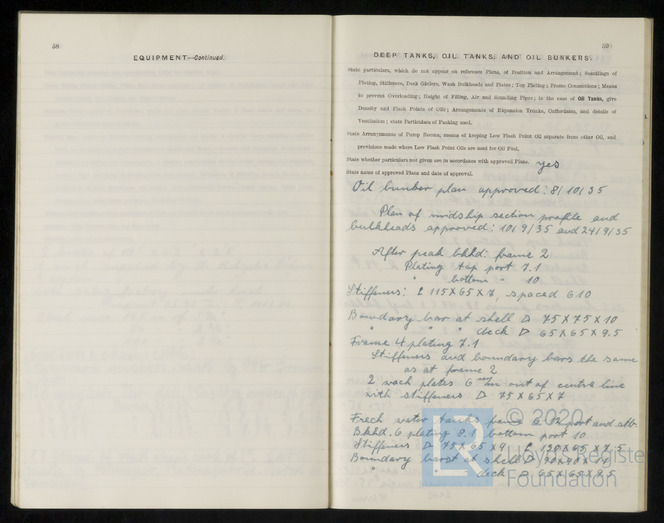 58
EQUIPMENT—Continued.
59
DEEP TANKS, OIL TANKS, AND OIL BUNKERS.
State particulars, which do not appear on reference Plans, of Position and Arrangement; Scantlings of
Plating, Stiffeners, Deck Girders, Wash Bulkheads and Plates; Top Plating; Frame Connections; Means
to prevent Overloading; Height of Filling, Air and Sounding Pipes; in the case of Oil Tanks, give
Density and Flash Points of Oils; Arrangements of Expansion Trunks, Cofferdams, and details of
Ventilation; state Particulars of Packing used.
State Arrangements of Pump Rooms, means of keeping Low Flash Point Oil separate from other Oil, and
provisions made where Low Flash Point Oils are used for Oil Fuel.
State whether particulars not given are in accordance with approved Plans. yes
State name of approved Plans and date of approval.
Oil bunker plan approved: 8/10/35
Plan of midship section profile and
bulkheads approved: 10/9/35 and 24/9/35
After peak bkhd: frame 2
Plating top port 7.1
" bottom " 10
Stiffeners: 115X65X7, spaced 610
Boundary bar at shell 75X75X10
" " " deck 65X65X9.5
Frame 4 plating 7.1
Stiffeners and boundary bars the same
as at frame 2
2 wash plates 6 mm out of centre line
with stiffeners 75X65X7
Fresh water tanks frame 6-12 port and stb.
Bkhd. 6 plating 8.1 bottom port 10
Stiffeners 75X65X9, 130X65X7.5
Boundary bars at shell
" deck 65X65X9.5
LR
© 2020
Lloyd's Register
Foundation